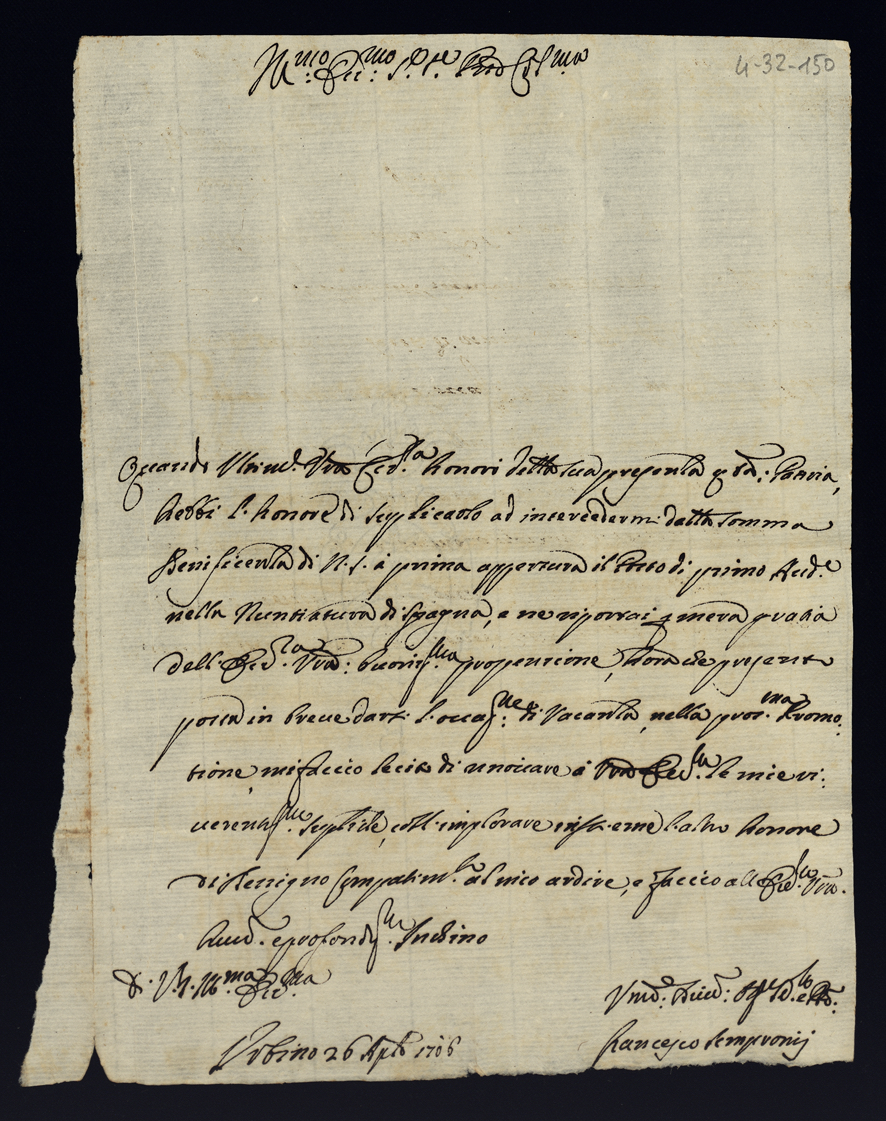 Ill.mo Ecc.mo S.re P.rone Col.mo
4-32-150
Quando Vra Ecc.za honorò della sua presenza q.ta Patria,
hebbi l'honore di supplicarlo ad intercedermi dalla somma
Beneficenza di N. S. à prima appertura il Posto di primo Aud.e
nella Nuntiatura di Spagna, e ne riportai p mera gratia
dell'Ecc.za Vra: buoniss.ma propensione, hora che
possa in breve darsi l'occas.ne di Vacanza, nella pros.ma Promo:
tione, mi faccio lecito di rinovare à Vra Ecc.za le mie ri:
verentiss.me suppliche, coll'implorare insieme l'altro honore
di benigno compatim.to al mio ardire, e faccio all'Ecc.za Vra.
hum. e profondiss.mo Inchino
D. V. Ill.ma Ecc.ma
Urbino 26 1706
Francesco Sempronij